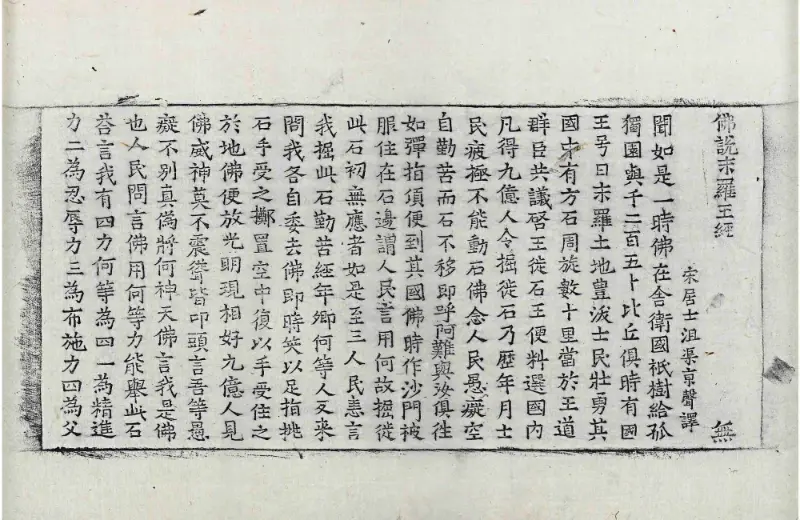 佛說末羅王經 無
宋居士沮渠京聲譯
聞如是一時佛在舍衛國祇樹給孤
獨園與千二百五十比丘俱時有國
王号曰末羅土地豊沃士民壯勇其
國中有方石周旋數十里當於王道
群臣共議啓王徙石王便料選國内
凡得九億人令掘徙石乃歷年月士
民疲極不能動石佛念人民愚癡空
自勤苦而石不移即呼阿難與汝俱往
如彈指頃便到其國佛時作沙門被
服住在石邊謂人民言用何故掘徙
此石初無應者如是至三人民恚言
我掘此石勤苦經年卿何等人反来
問我各自委去佛即時笑以足指挑
石手受之擲置空中復以手受住之
於地佛便放光明現相好九億人見
佛威神莫不震驚皆叩頭言吾等愚
癡不別真偽將何神天佛言我是佛
也人民問言佛用何等力能舉此石
荅言我有四力何等為四一為精進
力二為忍辱力三為布施力四為父